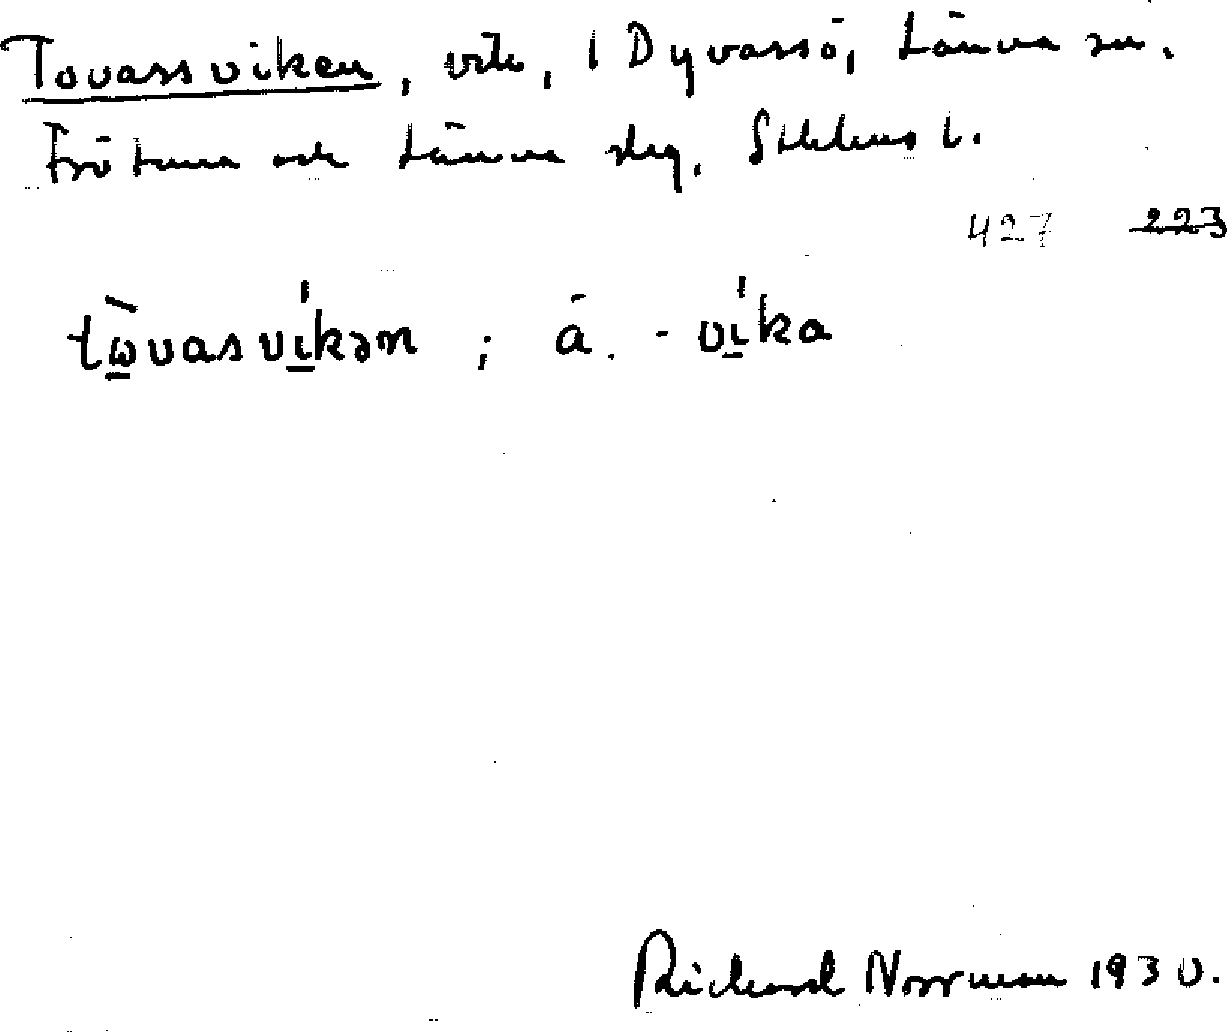 Tovassviken, vik, i Dyvassö, Länna sn.
Frötuna och Länna slg, Sthlms l.
427 223
tὼ̲vasvi̲kən ; ä. - vi̲ka
Richard Norrman 1930.